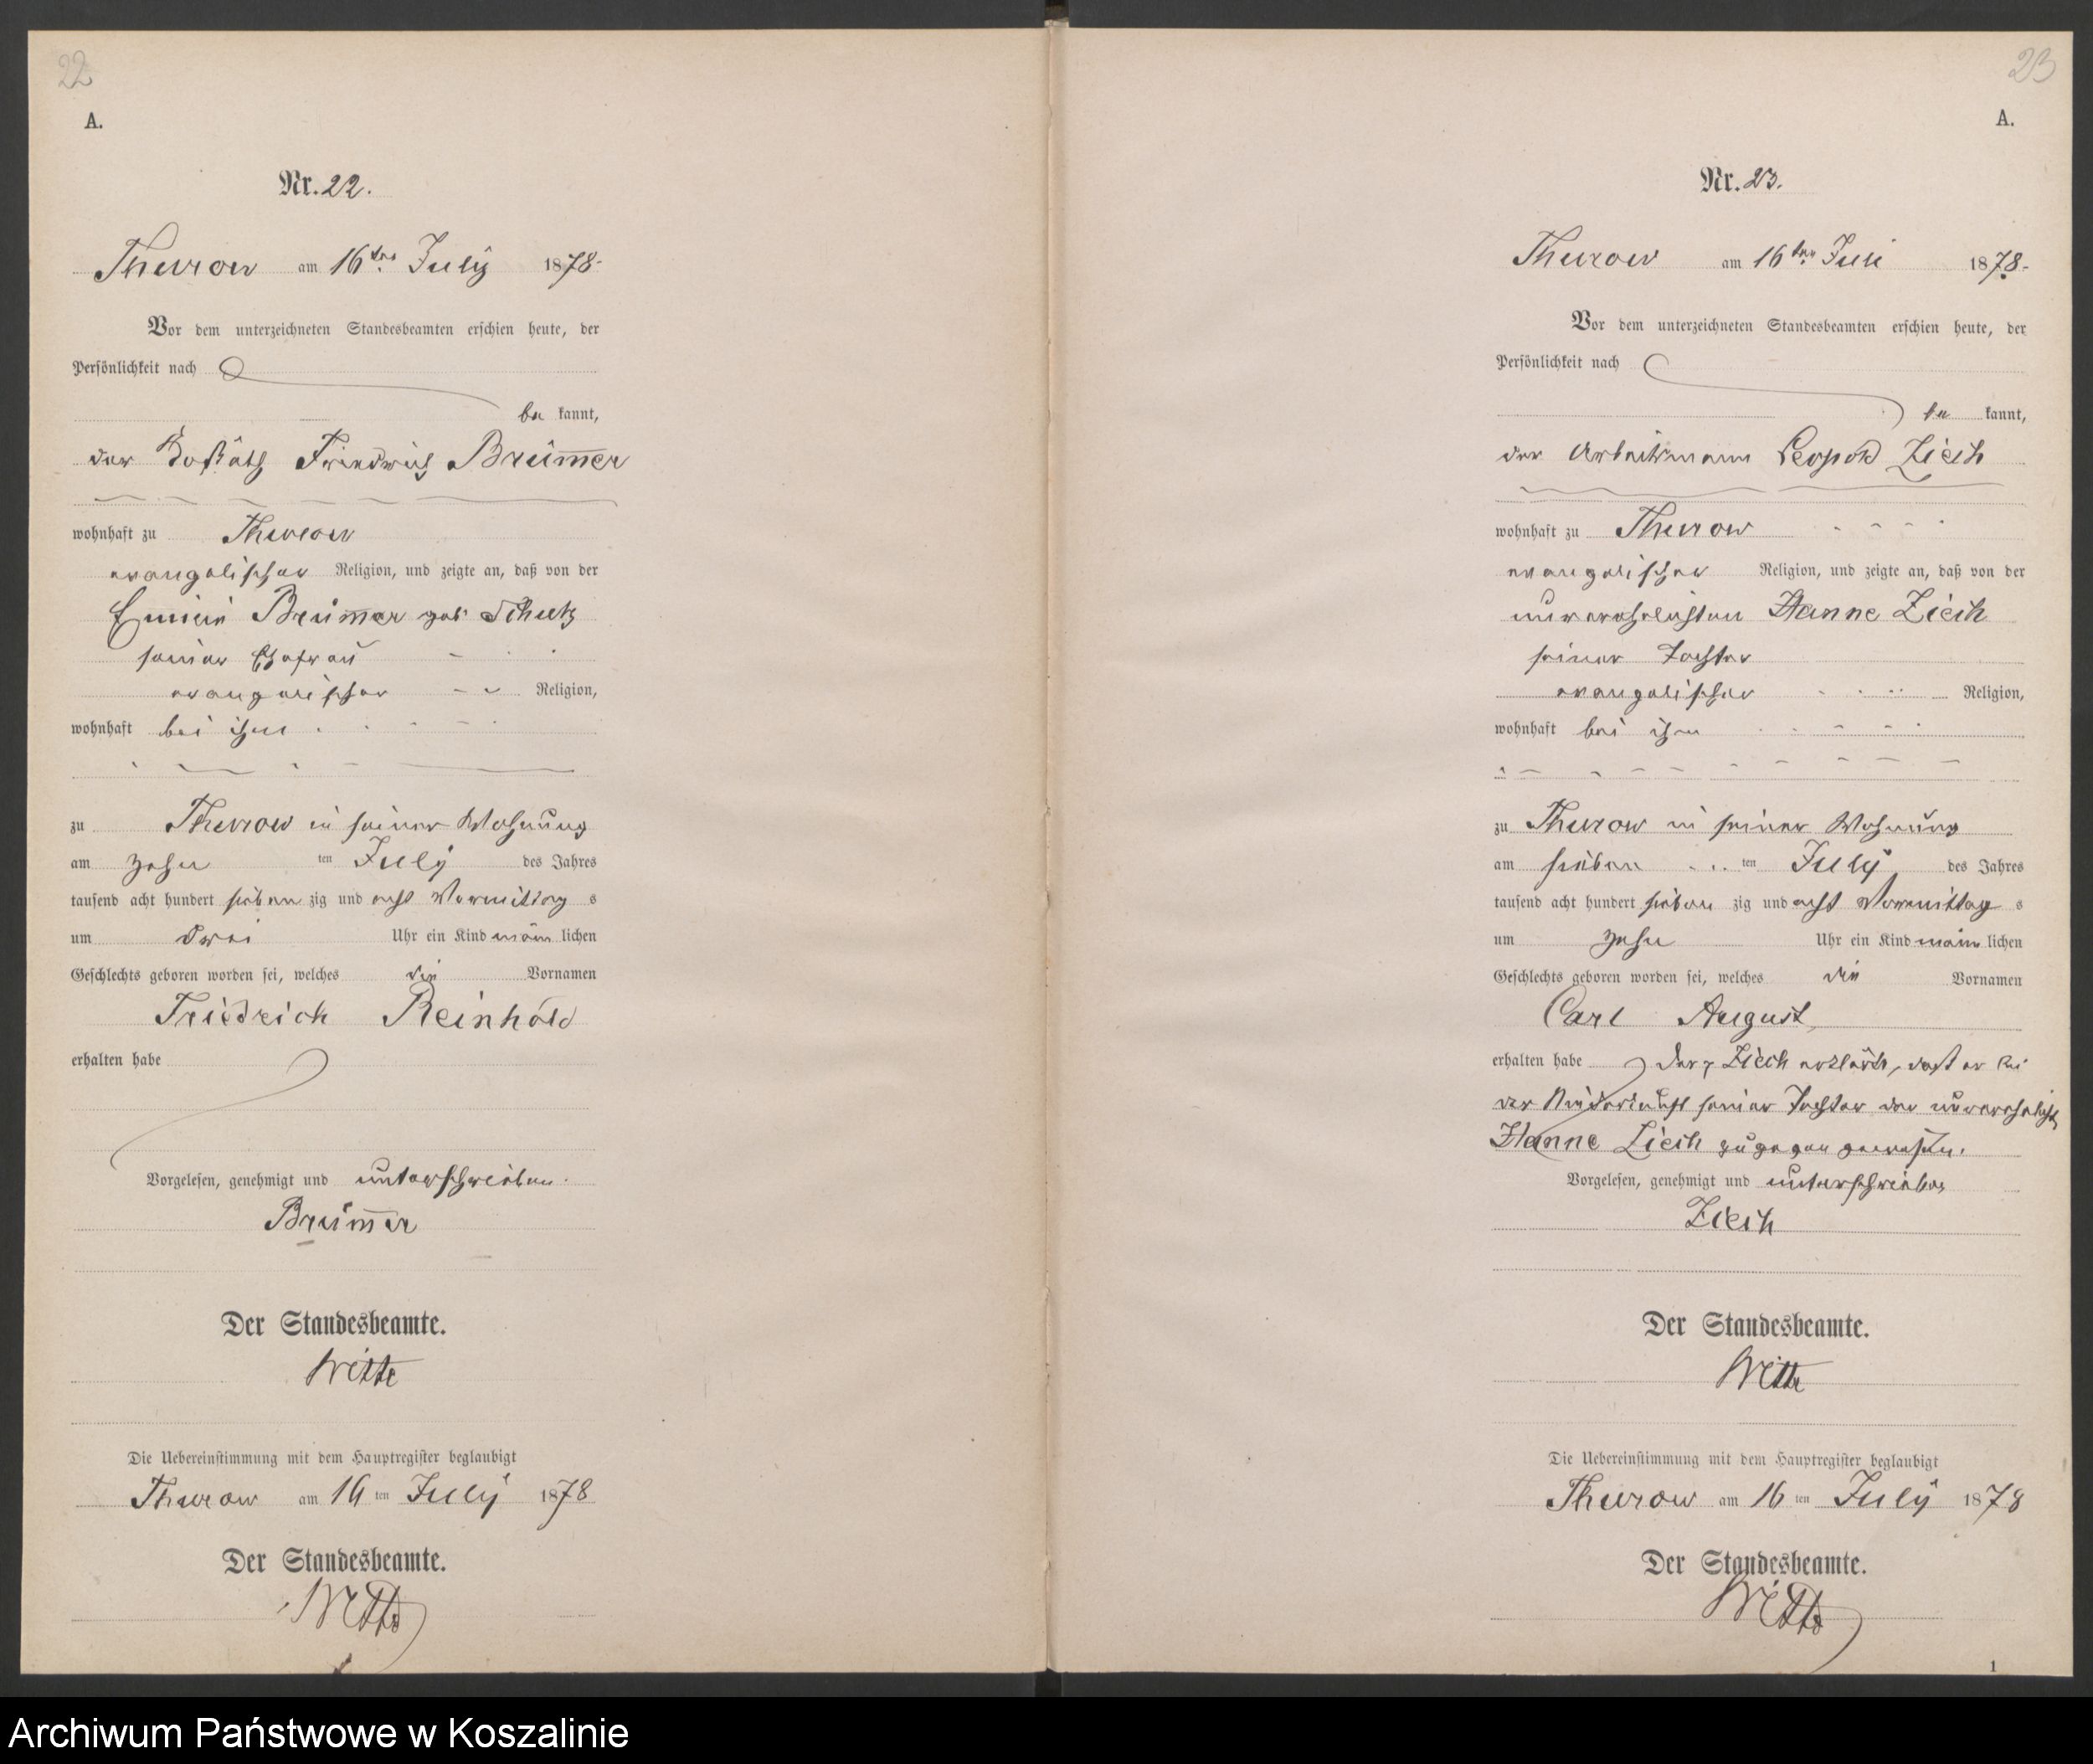 22
A.
Nr. 22.
Thurow am 16ten July 1878.
Vor dem unterzeichneten Standesbeamten erschien heute, der
Persönlichkeit nach
be kannt,
der Koßäth Friedrich Brümmer
wohnhaft zu Thurow
evangelischer Religion, und zeigte an, daß von der
Brümmer geb. Schutz
seiner Ehefrau
evangelischer Religion,
wohnhaft bei ihm
zu Thurow in seiner Wohnung
am zehn ten July des Jahres
tausend acht hundert sieben zig und acht Vormittag s
um drei Uhr ein Kind männ lichen
Geschlechts geboren worden sei, welches die Vornamen
Friedrich Reinhold
erhalten habe
Vorgelesen, genehmigt und unterschrieben.
Brümmer
Der Standesbeamte.
Witte
Die Uebereinstimmung mit dem Hauptregister beglaubigt
Thurow am 16 ten July 1878
Der Standesbeamte.
Witte
23
A.
Nr. 23.
Thurow am 16ten Juli 1878.
Vor dem unterzeichneten Standesbeamten erschien heute, der
Persönlichkeit nach
be kannt,
der Arbeitsmann Leopold Ziech
wohnhaft zu Thurow
evangelischer Religion, und zeigte an, daß von der
unverehelichten Hanne Ziech
seiner Tochter
evangelischer Religion,
wohnhaft bei ihm
zu Thurow in seiner Wohnung
am sieben ten July des Jahres
tausend acht hundert sieben zig und acht Vormittag s
um zehn Uhr ein Kind männ lichen
Geschlechts geboren worden sei, welches die Vornamen
Carl August
erhalten habe Der Ziech erklärte, daß er bei
der Niederkunft seiner Tochter der unverehelicht
Hanne Ziech zugegen gewesen.
Vorgelesen, genehmigt und unterschrieben
Ziech
Der Standesbeamte.
Witte
Die Uebereinstimmung mit dem Hauptregister beglaubigt
Thurow am 16 ten July 1878
Der Standesbeamte.
Witte
1
Archiwum Państwowe w Koszalinie